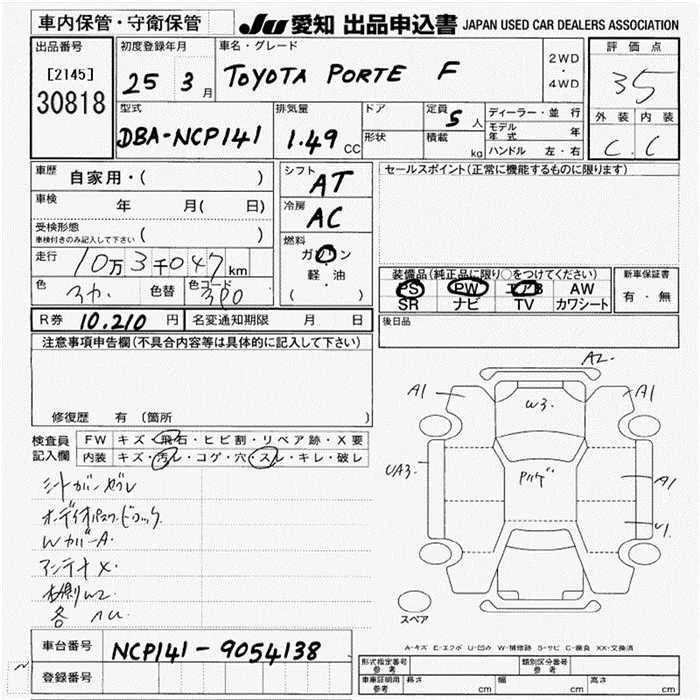 車内保管・守衛保管
JU 愛知 出品申込書 JAPAN USED CAR DEALERS ASSOCIATION
出品番号
[2145]
30818
初度登録年月
25 3月
車名・グレード
TOYOTA PORTE F
2WD
・
4WD
評価点
3.5
外装 内装
C C
型式
DBA-NCP141
排気量
1.49 CC
ドア
形状
定員
5人
積載
kg
ディーラー・並行
モデル年式 年
ハンドル 左・右
車歴
自家用・( )
車検
年 月( 日)
受検形態
車検付きのみ記入して下さい ( )
走行
10万3千047km
色
色替
色コード
シフト
AT
冷房
AC
燃料
ガソリン
軽・油
( )
セールスポイント(正常に機能するものに限ります)
装備品(純正品に限り○をつけてください)
PS PW エアB AW
SR ナビ TV カワシート
新車保証書
有・無
R券 10.210 円
名変通知期限 月 日
後日品
注意事項申告欄(不具合内容等は具体的に記入して下さい)
修復歴 有 (箇所 )
検査員記入欄
FW キズ・飛石・ヒビ割・リペア跡・X要
内装 キズ・汚レ・コゲ・穴・スレ・キレ・破レ
オーディオパスワードロック
WカバーA.
アンテナX.
A2
A1
W3.
A1
UA3.
A1
U1.
スペア
A-キズ E-エクボ U-凹み W-補修跡 S-サビ C-腐食 XX-交換済
車台番号
NCP141-9054138
登録番号
形式指定番号
参考
類別区分番号
参考
車庫証明用
参考
長さ cm
幅 cm
高さ cm